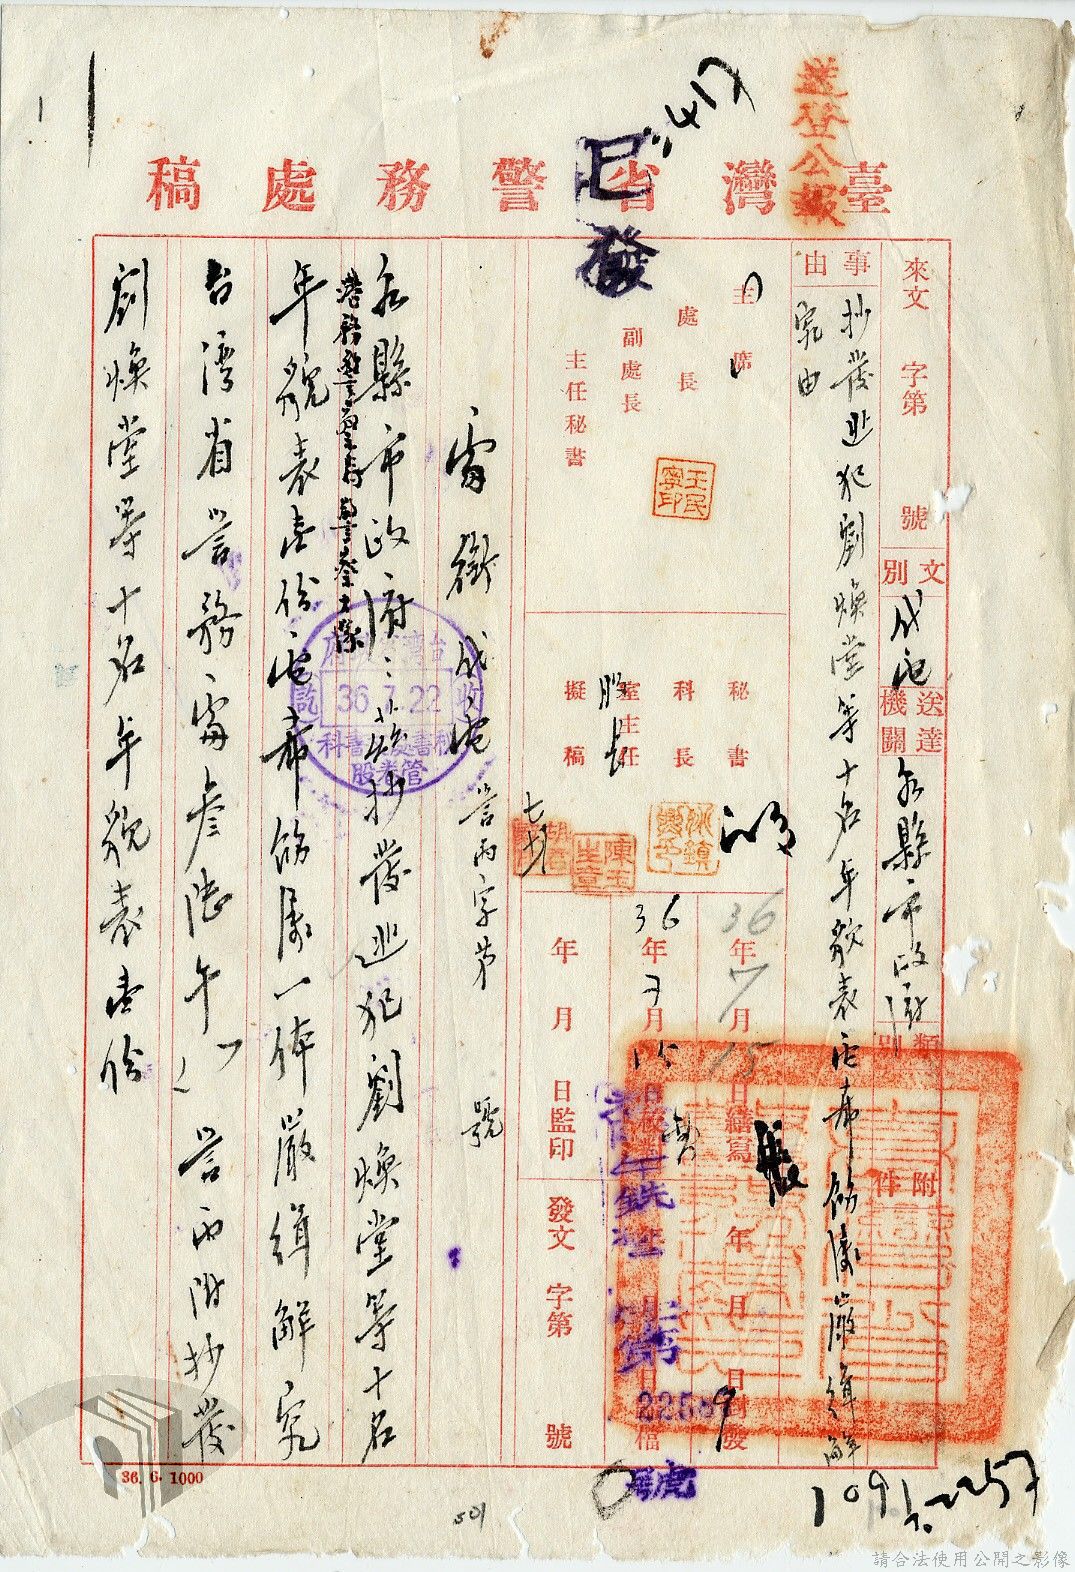 送登公報
臺灣省警務處稿
已發
來文 字第 號
文別 代電
送達機關 各縣市政府
類別
附件
事由 抄發逃犯劉煥堂等十名年貌表電希飭屬嚴緝解
究由
主席
處長
王民寧印
副處長
主任秘書
秘書
科長
室主任
股長
擬稿
36年7月15日繕寫
36年7月15日校對
年月日監印
年月日封發
年月日檔
發文 字第 號
22589
號
銜代電 警丙字第 號
各縣市政府
港務警察局警察大隊
茲抄發逃犯劉煥堂等十名
年貌表壹份電希飭屬一体嚴緝解究
台灣省警務處 警丙附抄發
劉煥堂等十名年貌表壹份
36.7.22
收
管卷股
36. 6. 1000
501
請合法使用公開之影像